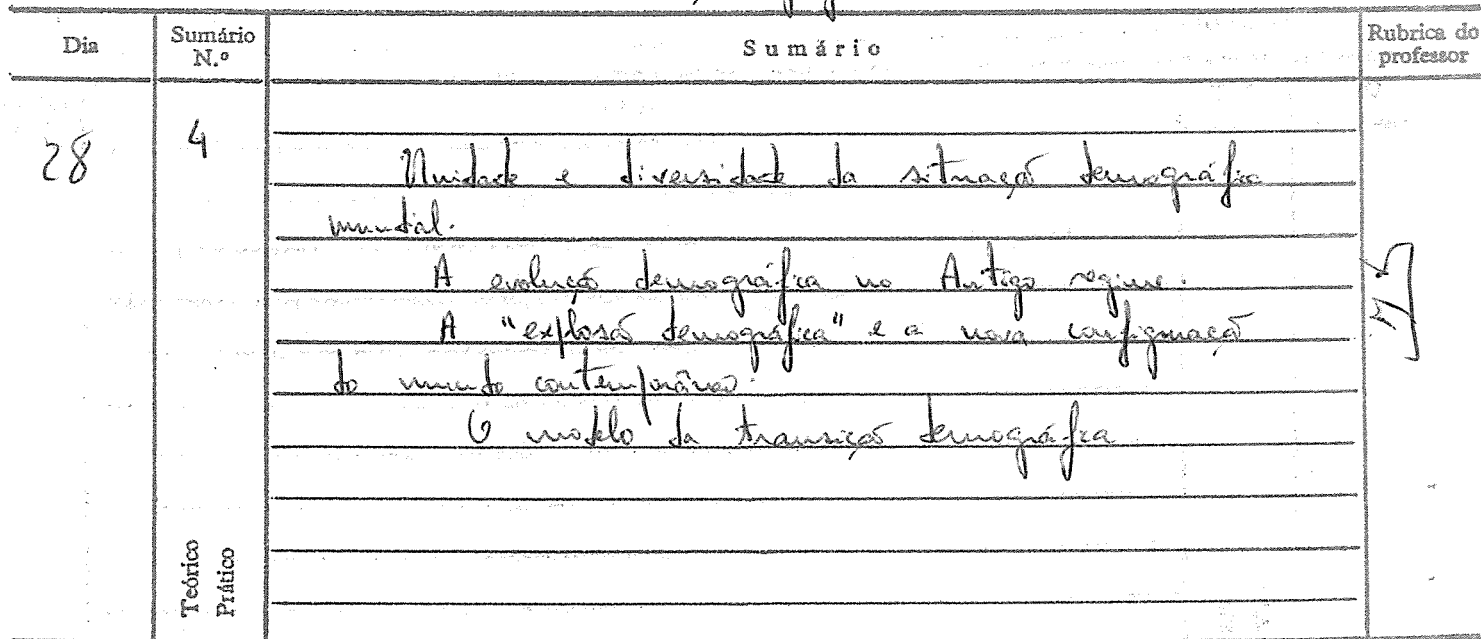 Dia
Sumário N.º
Sumário
Rubrica do professor
28
4
Unidade e diversidade da situação demográfica
mundial.
A evolução demográfica no Antigo regime.
A "explosão demográfica" e a nova configuração
do mundo contemporâneo.
O modelo da transição demográfica
Teórico
Prático